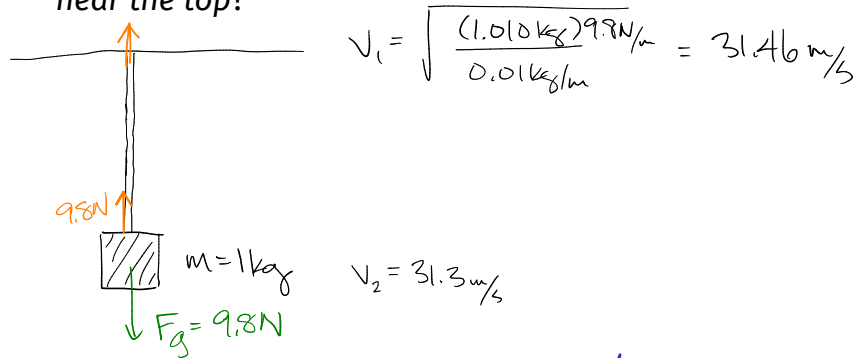 near the top?
V₁ = √((1.010 kg) 9.8 N/m / 0.01 kg/m) = 31.46 m/s
9.8N
m = 1kg
V₂ = 31.3 m/s
F_g = 9.8N